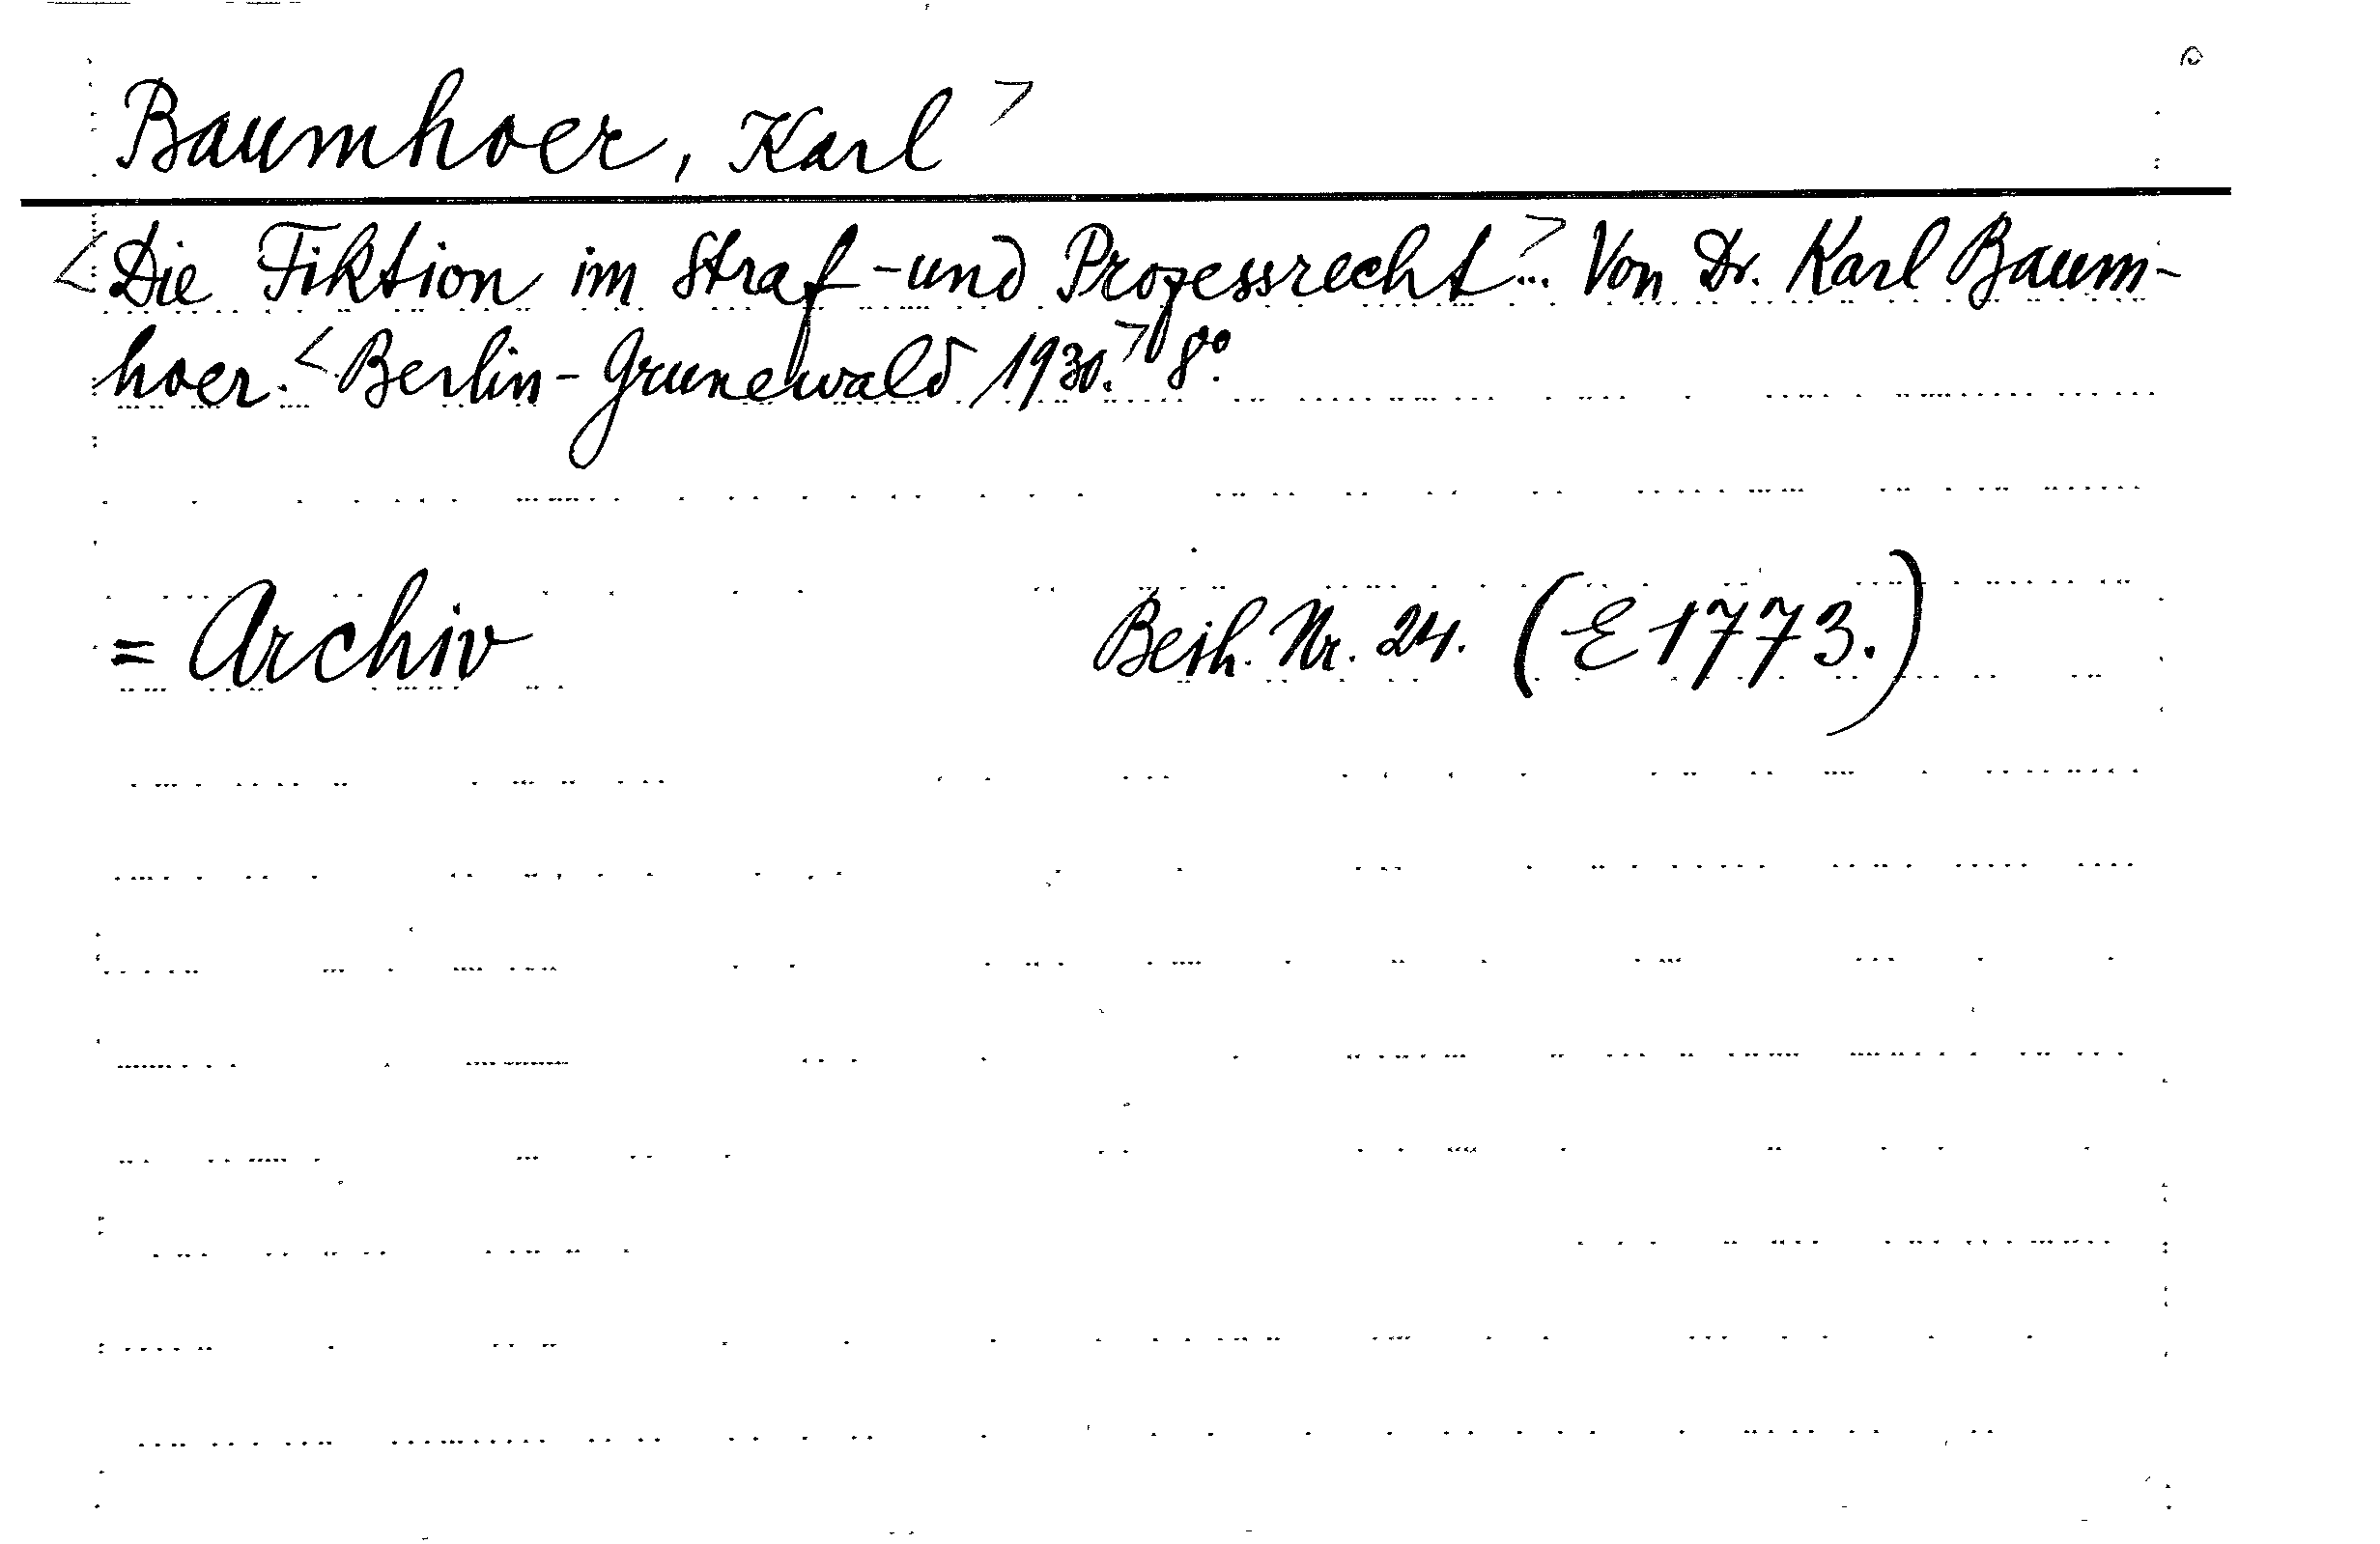 Baumhoer, Karl >
<Die Fiktion im Straf-und Prozessrecht>... Von Dr. Karl Baum-
hoer. <Berlin-Grunewald 1930.> 8°.
= Archiv Beih. Nr. 24. (E 1773.)